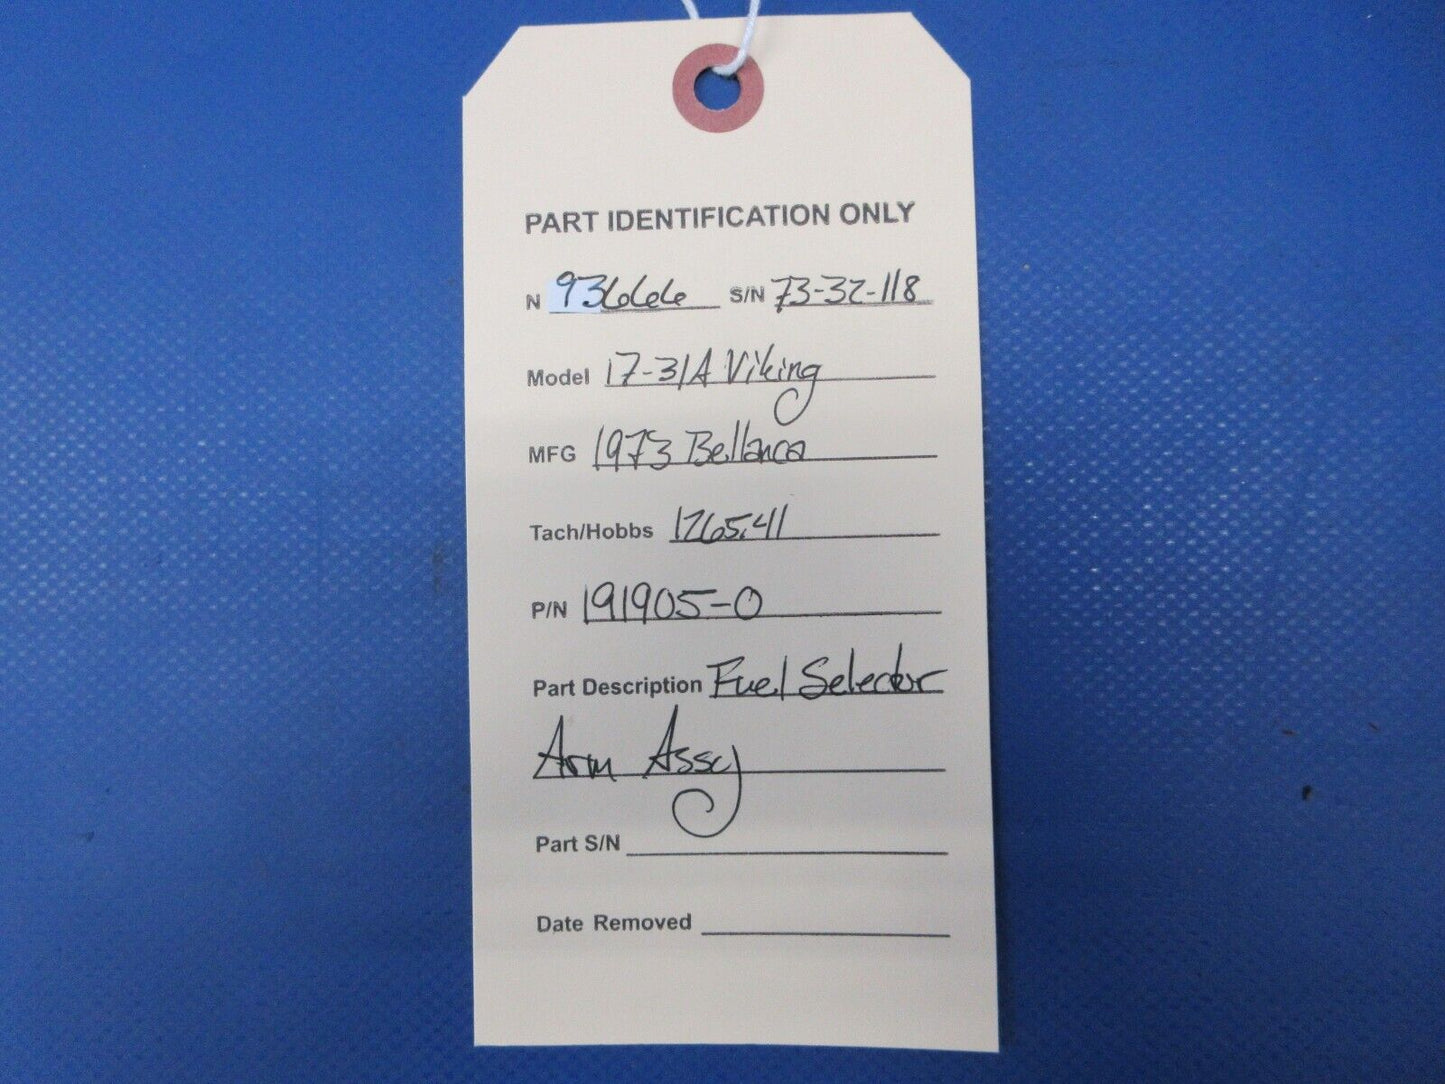 PART IDENTIFICATION ONLY
N 93666 S/N 73-32-118
Model 17-31A Viking
MFG 1973 Bellanca
Tach/Hobbs 1265.41
P/N 191905-0
Part Description Fuel Selector
Arm Assy
Part S/N
Date Removed